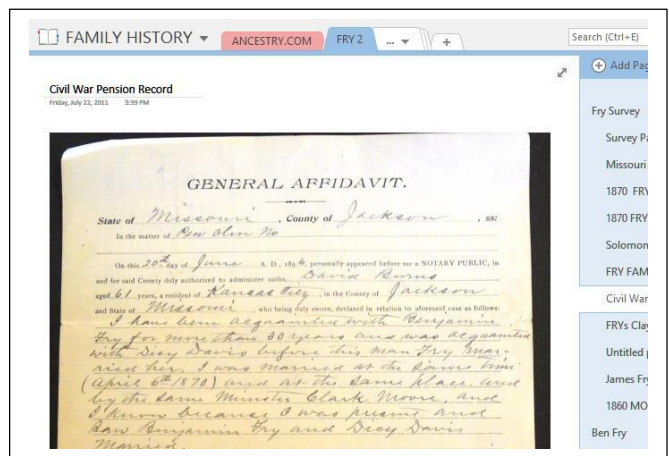 FAMILY HISTORY
ANCESTRY.COM
FRY 2
...
+
Search (Ctrl+E)
Add Pag
Civil War Pension Record
Friday, July 22, 2011 3:39 PM
GENERAL AFFIDAVIT.
State of Missouri, County of Jackson, ss:
In the matter of Pen Olim No
On this 20th day of June A. D., 1896, personally appeared before me a NOTARY PUBLIC, in
and for said County duly authorized to administer oaths, David Burns
aged 61 years, a resident of Kansas City, in the County of Jackson
and State of Missouri, who being duly sworn, declared in relation to aforesaid case as follows:
I have been acquainted with Benjamin
Fry for more than 30 years and was acquainted
with Dicy Davis before this man Fry mar-
ried her, I was married at the same time
(April 6th 1870) and at the same place, and
by the same Minister Clark Moore, and
I know because I was present and
saw Benjamin Fry and Dicy Davis
Married.
Fry Survey
Survey Pa
Missouri
1870 FRY
1870 FRY
Solomon
FRY FAM
Civil War
FRYs Clay
Untitled p
James Fry
1860 MO
Ben Fry